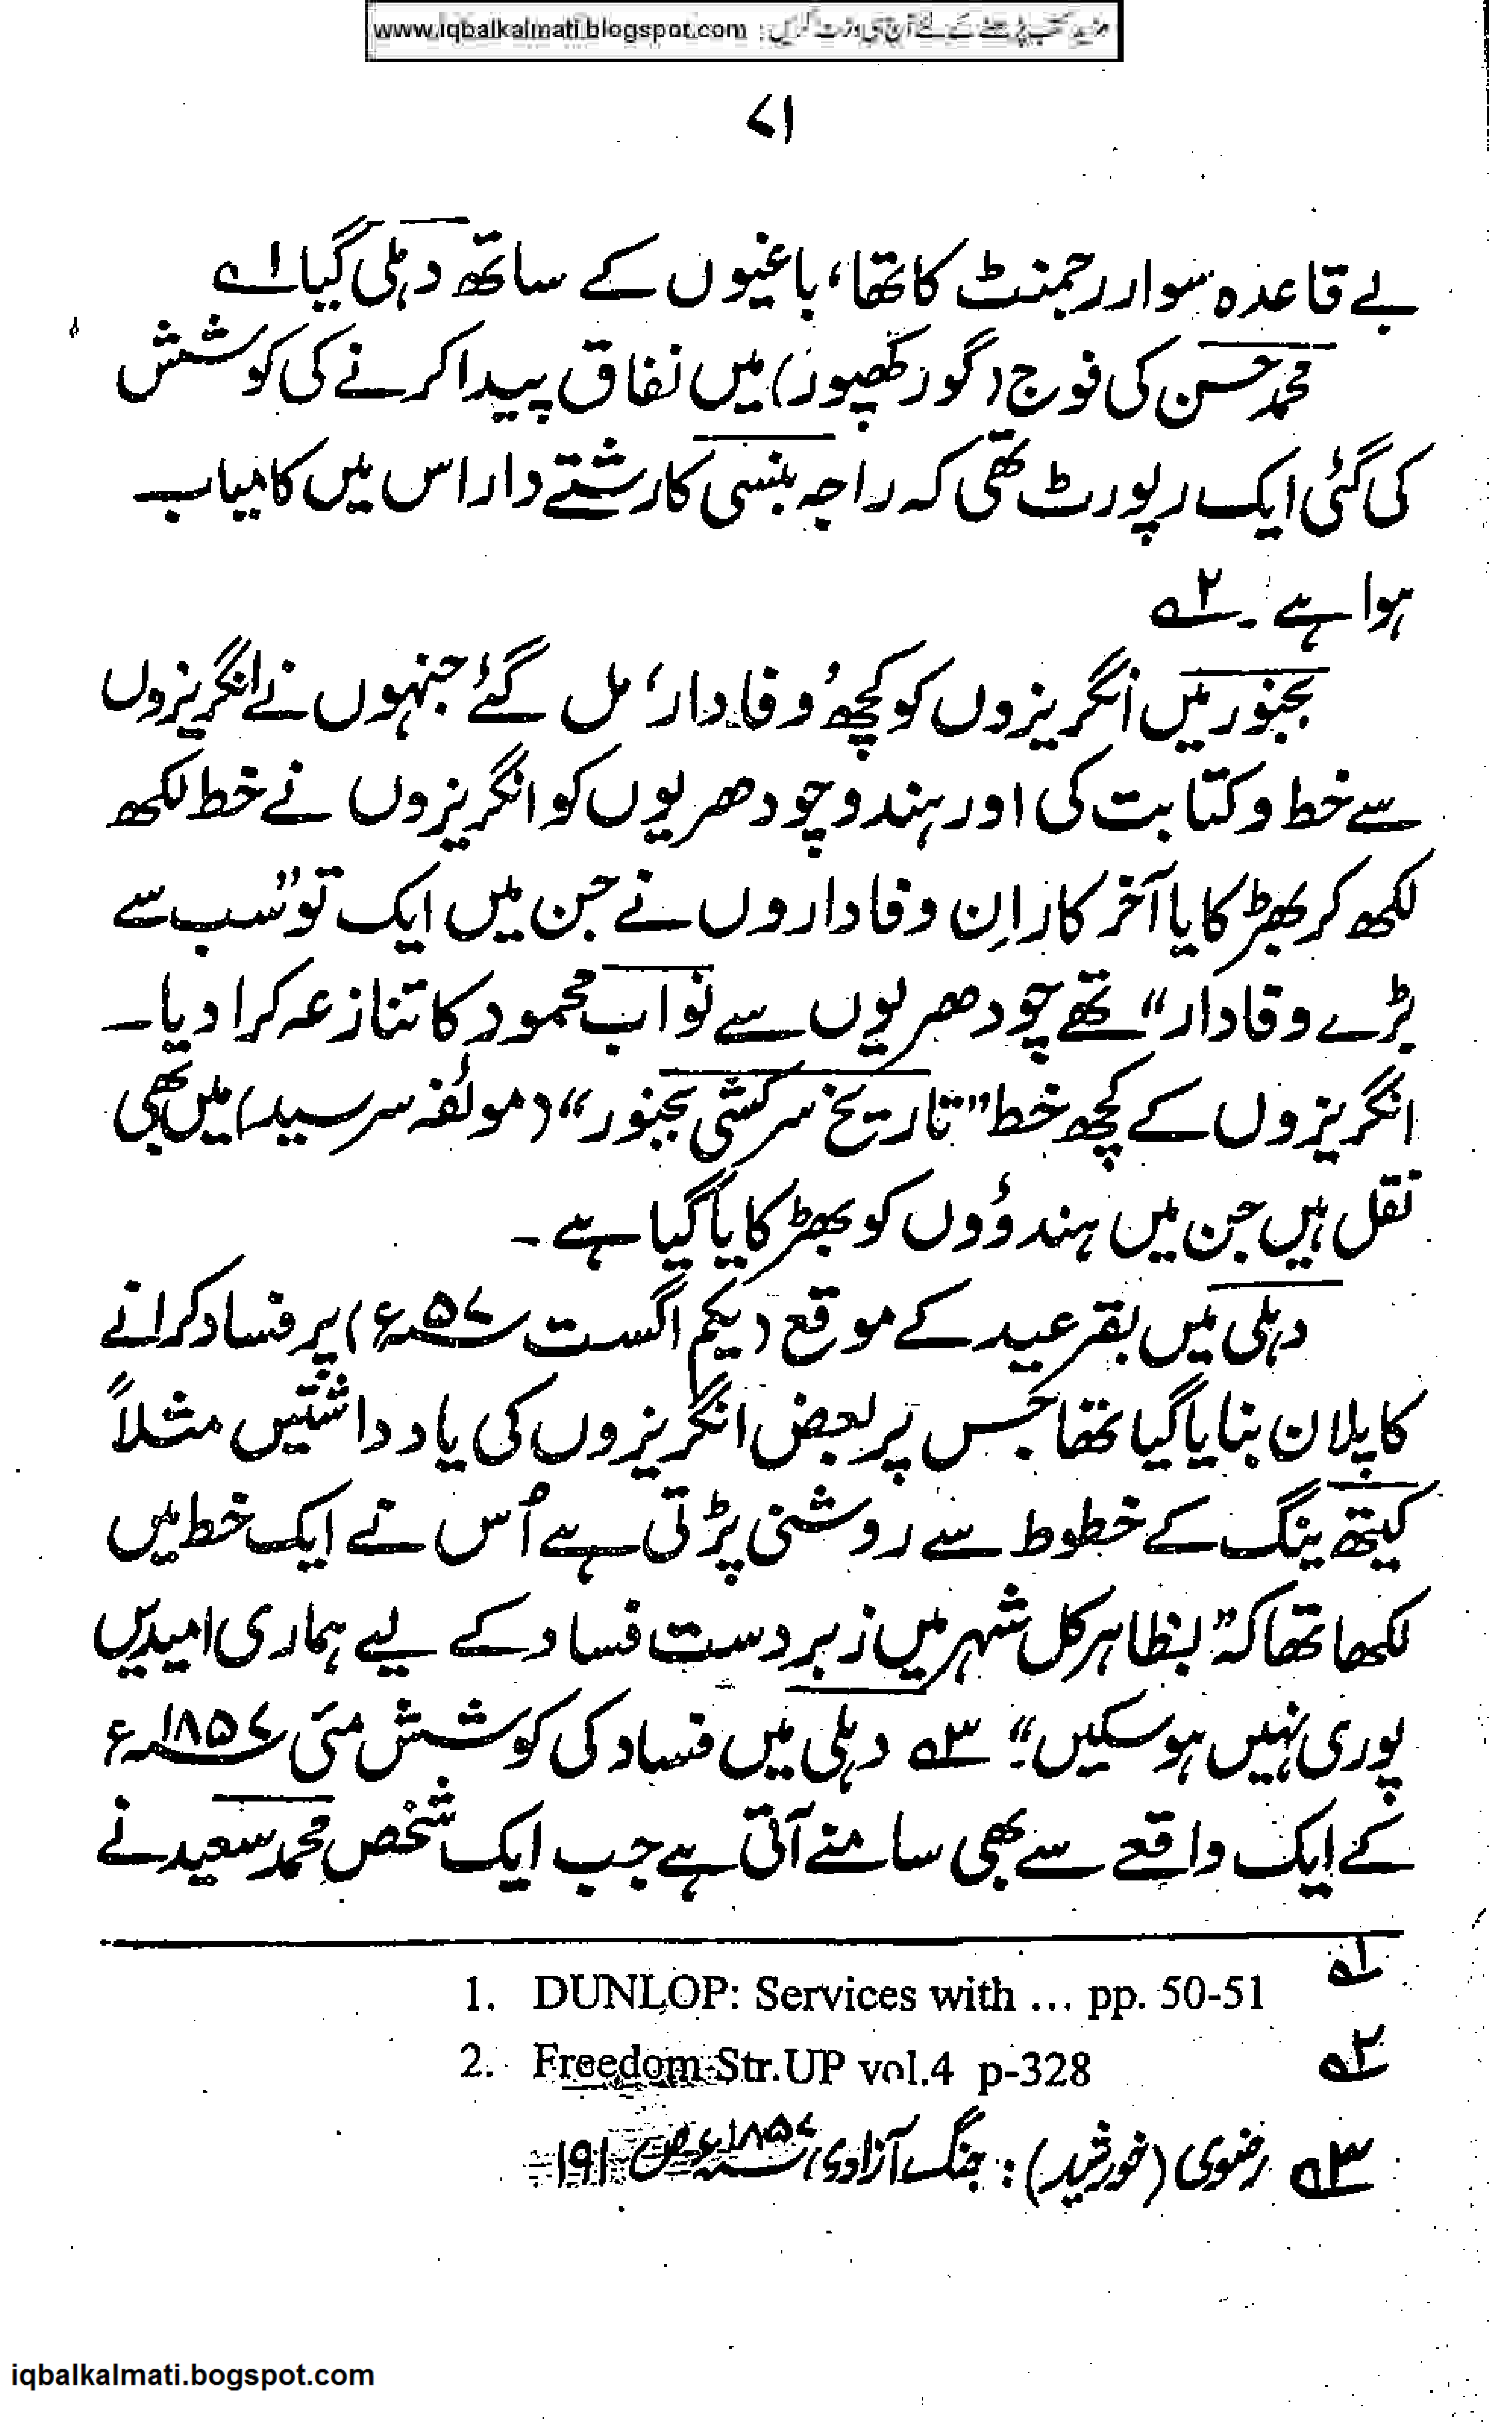 www.iqbalkalmati.blogspot.com : مزید کتب پڑھنے کے لئے آج ہی وزٹ کریں
۷۱
بے قاعدہ سوار رجمنٹ کا تھا، باغیوں کے ساتھ دہلی گیا ؎۱
محمد حسن کی فوج (گورکھپور) میں نفاق پیدا کرنے کی کوشش
کی گئی ایک رپورٹ تھی کہ راجہ بنسی کا رشتے دار اس میں کامیاب
ہوا ہے ۔ ؎۲
بجنور میں انگریزوں کو کچھ ’وفادار‘ مل گئے جنہوں نے انگریزوں
سے خط و کتابت کی اور ہندو چودھریوں کو انگریزوں نے خط لکھ
لکھ کر بھڑکایا آخر کار اِن وفاداروں نے جن میں ایک تو ”سب سے
بڑے وفادار“ تھے چودھریوں سے نواب محمود کا تنازعہ کرا دیا۔
انگریزوں کے کچھ خط ”تاریخ سرکشی بجنور“ (مولٔفہ سرسید) میں بھی
نقل ہیں جن میں ہندوؤں کو بھڑکایا گیا ہے ۔
دہلی میں بقرعید کے موقع (یکم اگست ۵۷ء) پر فساد کرانے
کا پلان بنایا گیا تھا جس پر بعض انگریزوں کی یادداشتیں مثلاً
کیتھ ینگ کے خطوط سے روشنی پڑتی ہے اُس نے ایک خط میں
لکھا تھا کہ ”بظاہر کل شہر میں زبردست فساد کے لیے ہماری امیدیں
پوری نہیں ہو سکیں“؛ ؎۳ دہلی میں فساد کی کوشش مئی ۱۸۵۷ء
کے ایک واقعے سے بھی سامنے آتی ہے جب ایک شخص محمد سعید نے
؎۱ 1. DUNLOP: Services with ... pp. 50-51
؎۲ 2. Freedom Str.UP vol.4 p-328
؎۳ رضوی (خورشید) : جنگ آزادی ۱۸۵۷ء ص ۱۹۱
iqbalkalmati.bogspot.com